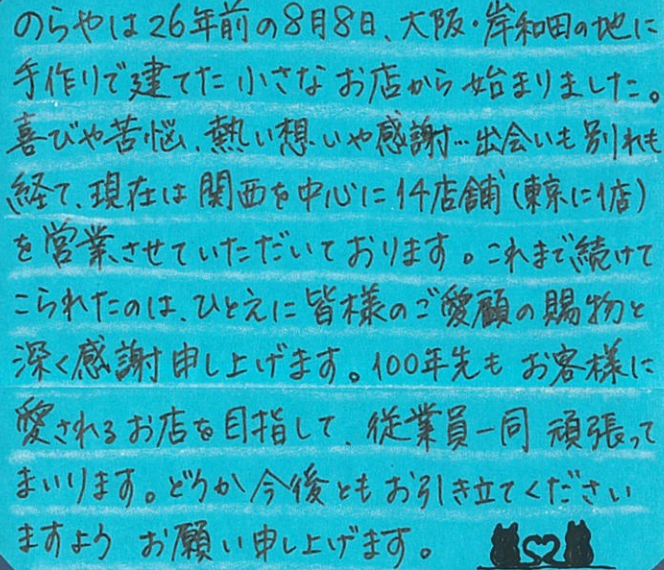 のらやは26年前の8月8日、大阪・岸和田の地に
手作りで建てた小さなお店から始まりました。
喜びや苦悩、熱い想いや感謝…出会いも別れも
経て、現在は関西を中心に14店舗(東京に1店)
を営業させていただいております。これまで続けて
こられたのは、ひとえに皆様のご愛顧の賜物と
深く感謝申し上げます。100年先もお客様に
愛されるお店を目指して、従業員一同頑張って
まいります。どうか今後ともお引き立てください
ますようお願い申し上げます。